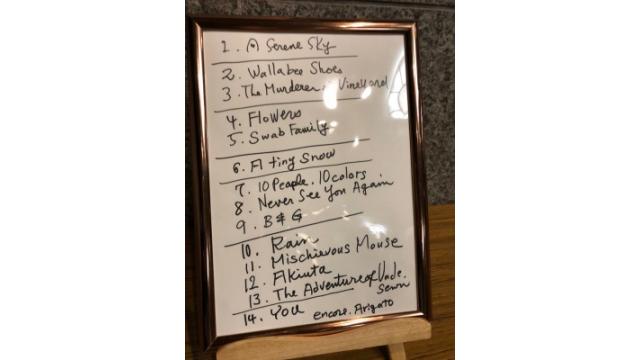 1. A Serene Sky
2. Wallabee Shoes
3. The Murderer in Vineland
4. Flowers
5. Swab Family
6. A tiny Snow
7. 10 People. 10 colors
8. Never See You Again
9. B & G
10. Rain
11. Mischievous Mouse
12. Akiuta
13. The Adventure of
14. You
encore. Arigato